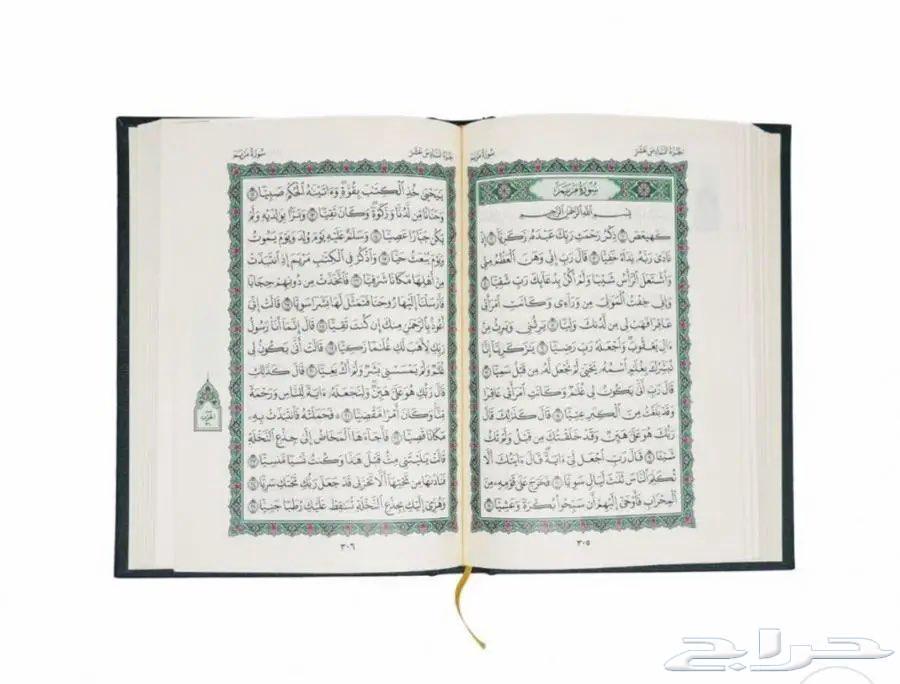 الجزء السادس عشر
سورة مريم
سُورَةُ مَرْيَمَ
بِسْمِ اللَّهِ الرَّحْمَٰنِ الرَّحِيمِ
كٓهيعٓصٓ ١ ذِكْرُ رَحْمَتِ رَبِّكَ عَبْدَهُۥ زَكَرِيَّآ ٢ إِذْ
نَادَىٰ رَبَّهُۥ نِدَآءً خَفِيًّا ٣ قَالَ رَبِّ إِنِّى وَهَنَ ٱلْعَظْمُ مِنِّى
وَٱشْتَعَلَ ٱلرَّأْسُ شَيْبًا وَلَمْ أَكُنۢ بِدُعَآئِكَ رَبِّ شَقِيًّا ٤
وَإِنِّى خِفْتُ ٱلْمَوَٰلِىَ مِن وَرَآءِى وَكَانَتِ ٱمْرَأَتِى
عَاقِرًا فَهَبْ لِى مِن لَّدُنكَ وَلِيًّا ٥ يَرِثُنِى وَيَرِثُ مِنْ
ءَالِ يَعْقُوبَ وَٱجْعَلْهُ رَبِّ رَضِيًّا ٦ يَٰزَكَرِيَّآ إِنَّا
نُبَشِّرُكَ بِغُلَٰمٍ ٱسْمُهُۥ يَحْيَىٰ لَمْ نَجْعَل لَّهُۥ مِن قَبْلُ سَمِيًّا ٧
قَالَ رَبِّ أَنَّىٰ يَكُونُ لِى غُلَٰمٌ وَكَانَتِ ٱمْرَأَتِى عَاقِرًا
وَقَدْ بَلَغْتُ مِنَ ٱلْكِبَرِ عِتِيًّا ٨ قَالَ كَذَٰلِكَ قَالَ
رَبُّكَ هُوَ عَلَىَّ هَيِّنٌ وَقَدْ خَلَقْتُكَ مِن قَبْلُ وَلَمْ تَكُ
شَيْـًٔا ٩ قَالَ رَبِّ ٱجْعَل لِّىٓ ءَايَةً قَالَ ءَايَتُكَ أَلَّا
تُكَلِّمَ ٱلنَّاسَ ثَلَٰثَ لَيَالٍ سَوِيًّا ١٠ فَخَرَجَ عَلَىٰ قَوْمِهِۦ مِنَ
ٱلْمِحْرَابِ فَأَوْحَىٰٓ إِلَيْهِمْ أَن سَبِّحُوا۟ بُكْرَةً وَعَشِيًّا ١١
٣٠٥
الجزء السادس عشر
سورة مريم
يَٰيَحْيَىٰ خُذِ ٱلْكِتَٰبَ بِقُوَّةٍ وَءَاتَيْنَٰهُ ٱلْحُكْمَ صَبِيًّا ١٢
وَحَنَانًا مِّن لَّدُنَّا وَزَكَوٰةً وَكَانَ تَقِيًّا ١٣ وَبَرًّۢا بِوَٰلِدَيْهِ وَلَمْ
يَكُن جَبَّارًا عَصِيًّا ١٤ وَسَلَٰمٌ عَلَيْهِ يَوْمَ وُلِدَ وَيَوْمَ يَمُوتُ
وَيَوْمَ يُبْعَثُ حَيًّا ١٥ وَٱذْكُرْ فِى ٱلْكِتَٰبِ مَرْيَمَ إِذِ ٱنتَبَذَتْ
مِنْ أَهْلِهَا مَكَانًا شَرْقِيًّا ١٦ فَٱتَّخَذَتْ مِن دُونِهِمْ حِجَابًا
فَأَرْسَلْنَآ إِلَيْهَا رُوحَنَا فَتَمَثَّلَ لَهَا بَشَرًا سَوِيًّا ١٧ قَالَتْ إِنِّىٓ
أَعُوذُ بِٱلرَّحْمَٰنِ مِنكَ إِن كُنتَ تَقِيًّا ١٨ قَالَ إِنَّمَآ أَنَا۠ رَسُولُ
رَبِّكِ لِأَهَبَ لَكِ غُلَٰمًا زَكِيًّا ١٩ قَالَتْ أَنَّىٰ يَكُونُ لِى
غُلَٰمٌ وَلَمْ يَمْسَسْنِى بَشَرٌ وَلَمْ أَكُ بَغِيًّا ٢٠ قَالَ كَذَٰلِكِ
قَالَ رَبُّكِ هُوَ عَلَىَّ هَيِّنٌ وَلِنَجْعَلَهُۥٓ ءَايَةً لِّلنَّاسِ وَرَحْمَةً
مِّنَّا وَكَانَ أَمْرًا مَّقْضِيًّا ٢١ فَحَمَلَتْهُ فَٱنتَبَذَتْ بِهِۦ
مَكَانًا قَصِيًّا ٢٢ فَأَجَآءَهَا ٱلْمَخَاضُ إِلَىٰ جِذْعِ ٱلنَّخْلَةِ
قَالَتْ يَٰلَيْتَنِى مِتُّ قَبْلَ هَٰذَا وَكُنتُ نَسْيًا مَّنسِيًّا ٢٣
فَنَادَىٰهَا مِن تَحْتِهَآ أَلَّا تَحْزَنِى قَدْ جَعَلَ رَبُّكِ تَحْتَكِ سَرِيًّا ٢٤
وَهُزِّىٓ إِلَيْكِ بِجِذْعِ ٱلنَّخْلَةِ تُسَٰقِطْ عَلَيْكِ رُطَبًا جَنِيًّا ٢٥
٣٠٦
حراج